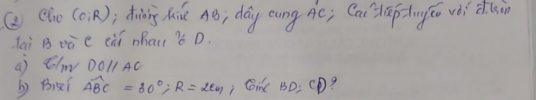 ② Cho (O;R); đường kính AB; dây cung AC; Các tiếp tuyến với đ.tròn
tại B và C cắt nhau ở D.
a) C/m DO // AC
b) Biết ABC = 30°; R = 2cm; tính BD; CD?